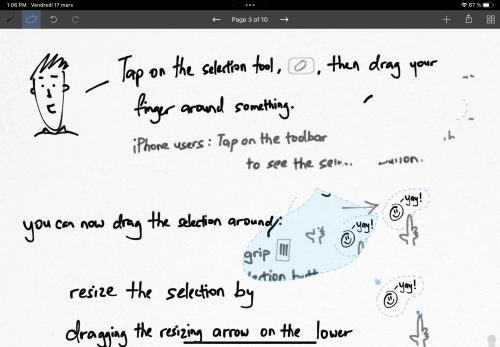 1:06 PM Vendredi 17 mars
67 %
Page 3 of 10
Tap on the selection tool, , then drag your
finger around something.
iPhone users: Tap on the toolbar
to see the
you can now drag the selection around:
yay!
yay!
grip
resize the selection by
yay!
dragging the resizing arrow on the lower